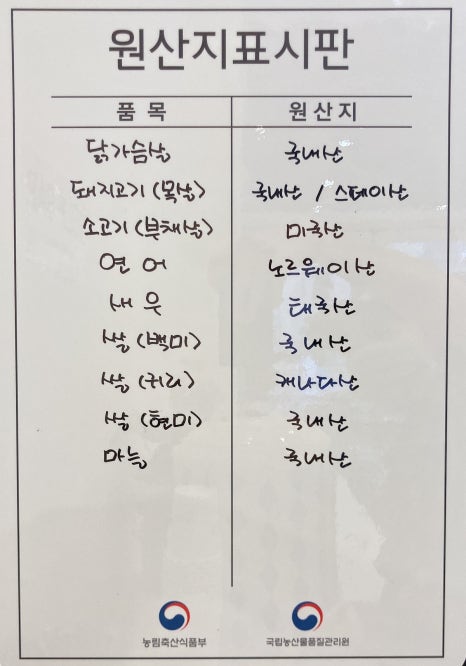 원산지표시판
품 목 원 산 지
닭가슴살 국내산
돼지고기 (목살) 국내산 / 스페인산
소고기 (부채살) 미국산
연 어 노르웨이산
새 우 태국산
쌀 (백미) 국내산
쌀 (귀리) 캐나다산
쌀 (현미) 국내산
마늘 국내산
농림축산식품부 국립농산물품질관리원